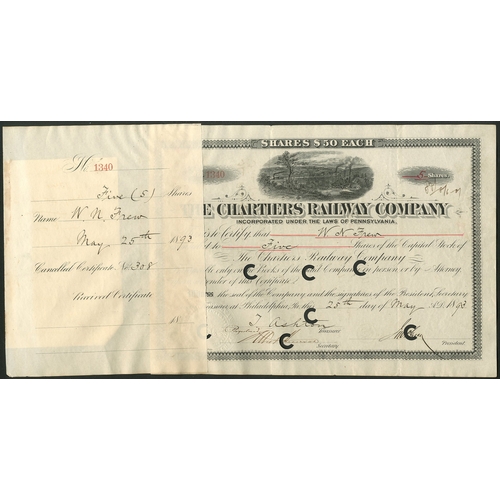 No 1340
Five (5) Shares
Name W. N. Frew
May 25th 1893
Cancelled Certificate No. 308
Received Certificate
18
SHARES $50 EACH
1340
5 Shares
E CHARTIERS RAILWAY COMPANY
INCORPORATED UNDER THE LAWS OF PENNSYLVANIA.
to certify, that W N Frew
to Five Shares of the Capital Stock of
The Chartiers Railway Company
only on the Books of the said Company in person or by Attorney
render of this Certificate
the seal of the Company and the signatures of the President, Secretary
at Philadelphia, Pa. this 25th day of May A.D. 1893
T. Ashton
Treasurer.
Secretary.
President.